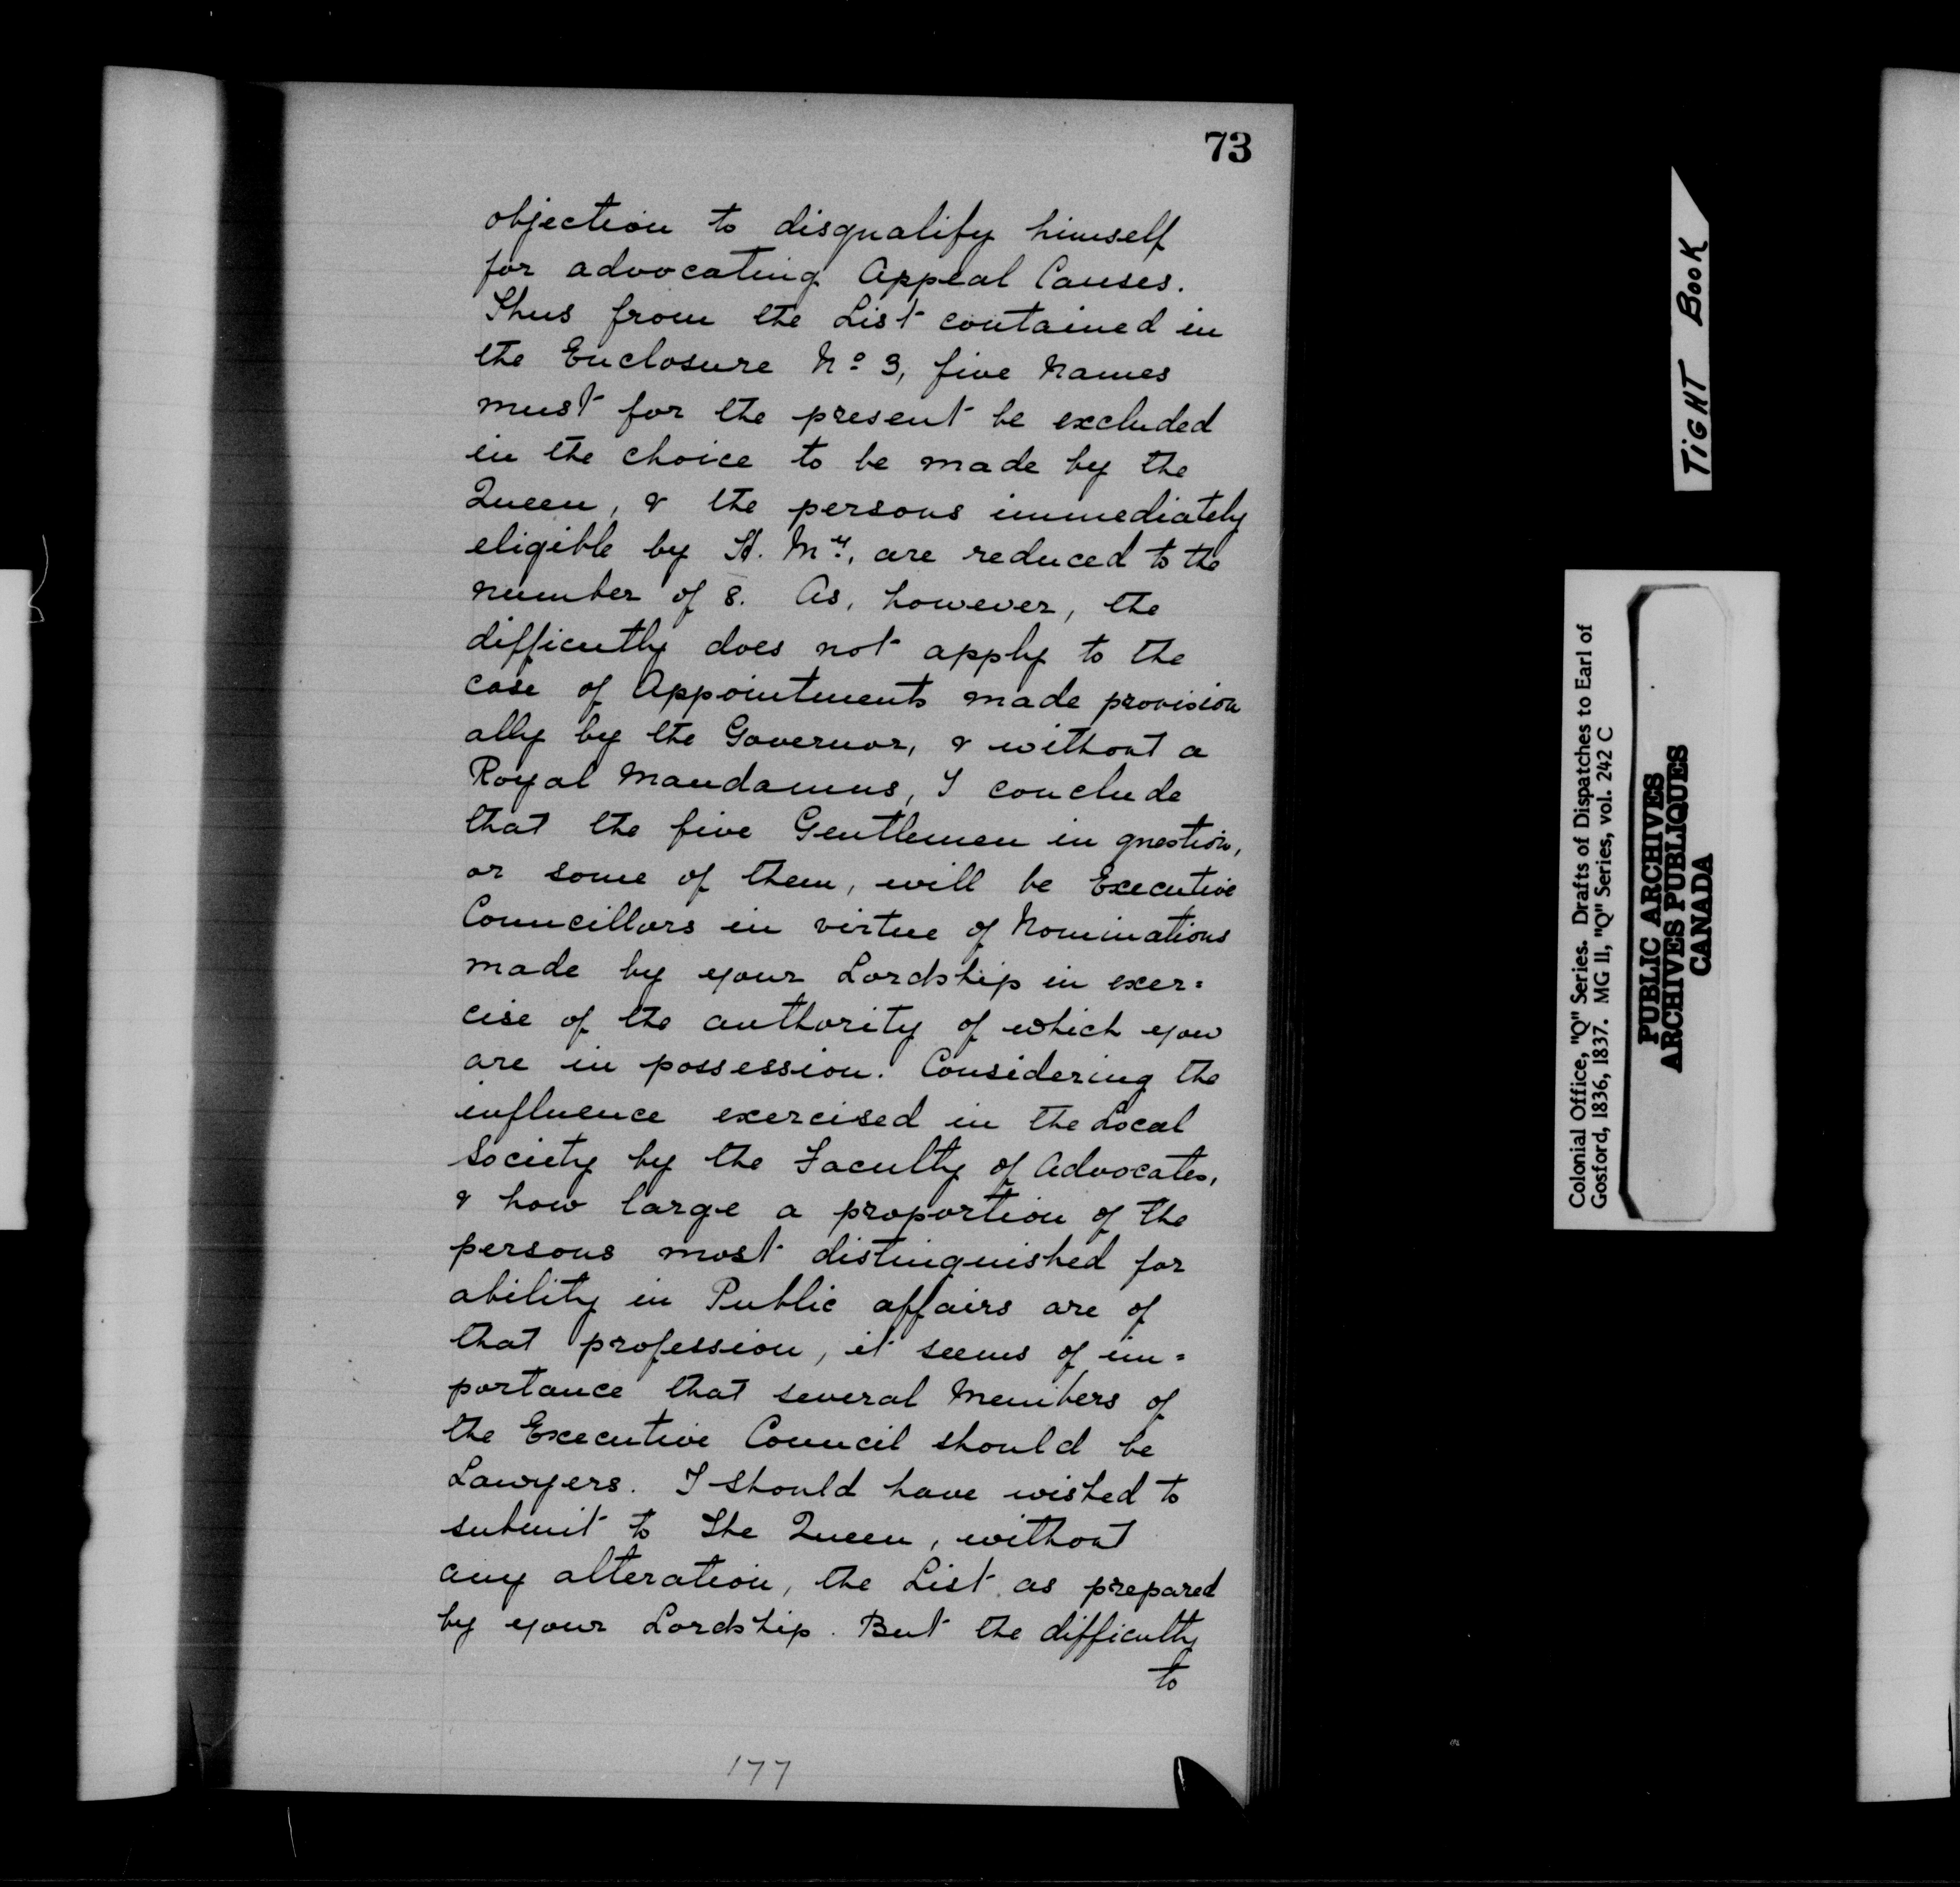 73
objection to disqualify himself
for advocating Appeal Causes.
Thus from the List contained in
the Enclosure No 3, five Names
must for the present be excluded
in the choice to be made by the
Queen, & the persons immediately
eligible by H. My, are reduced to the
number of 8. As, however, the
difficutly does not apply to the
case of Appointments made provision
ally by the Governor, & without a
Royal Mandamus, I conclude
that the five Gentlemen in question,
or some of them, will be Executive
Councillors in virtue of Nominations
made by your Lordship in exer=
cise of the authority of which you
are in possession. Considering the
influence exercised in the Local
Society by the Faculty of Advocates,
& how large a proportion of the
persons most distinguished for
ability in Public affairs are of
that profession, it seems of im=
portance that several Members of
the Executive Council should be
Lawyers. I should have wished to
submit to The Queen, without
any alteration, the List as prepared
by your Lordship. But the difficulty
to
177
TIGHT BOOK
Colonial Office, "Q" Series. Drafts of Dispatches to Earl of
Gosford, 1836, 1837. MG 11, "Q" Series, vol. 242 C
PUBLIC ARCHIVES
ARCHIVES PUBLIQUES
CANADA